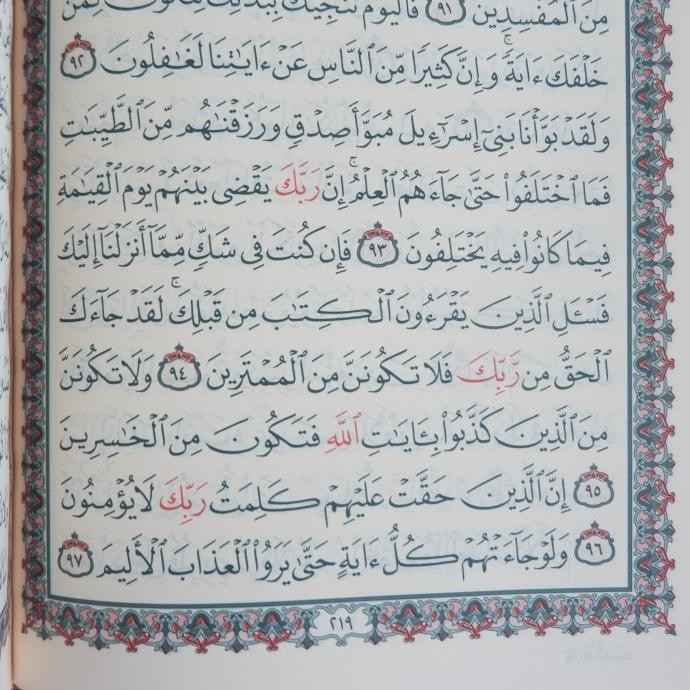 مِنَ ٱلْمُفْسِدِينَ ٩١ فَٱلْيَوْمَ نُنَجِّيكَ بِبَدَنِكَ لِتَكُونَ لِمَنْ
خَلْفَكَ ءَايَةً ۚ وَإِنَّ كَثِيرًا مِّنَ ٱلنَّاسِ عَنْ ءَايَٰتِنَا لَغَٰفِلُونَ ٩٢
وَلَقَدْ بَوَّأْنَا بَنِىٓ إِسْرَٰٓءِيلَ مُبَوَّأَ صِدْقٍ وَرَزَقْنَٰهُم مِّنَ ٱلطَّيِّبَٰتِ
فَمَا ٱخْتَلَفُوا۟ حَتَّىٰ جَآءَهُمُ ٱلْعِلْمُ ۚ إِنَّ رَبَّكَ يَقْضِى بَيْنَهُمْ يَوْمَ ٱلْقِيَٰمَةِ
فِيمَا كَانُوا۟ فِيهِ يَخْتَلِفُونَ ٩٣ فَإِن كُنتَ فِى شَكٍّ مِّمَّآ أَنزَلْنَآ إِلَيْكَ
فَسْـَٔلِ ٱلَّذِينَ يَقْرَءُونَ ٱلْكِتَٰبَ مِن قَبْلِكَ ۚ لَقَدْ جَآءَكَ
ٱلْحَقُّ مِن رَّبِّكَ فَلَا تَكُونَنَّ مِنَ ٱلْمُمْتَرِينَ ٩٤ وَلَا تَكُونَنَّ
مِنَ ٱلَّذِينَ كَذَّبُوا۟ بِـَٔايَٰتِ ٱللَّهِ فَتَكُونَ مِنَ ٱلْخَٰسِرِينَ
٩٥ إِنَّ ٱلَّذِينَ حَقَّتْ عَلَيْهِمْ كَلِمَتُ رَبِّكَ لَا يُؤْمِنُونَ
٩٦ وَلَوْ جَآءَتْهُمْ كُلُّ ءَايَةٍ حَتَّىٰ يَرَوُا۟ ٱلْعَذَابَ ٱلْأَلِيمَ ٩٧
٢١٩